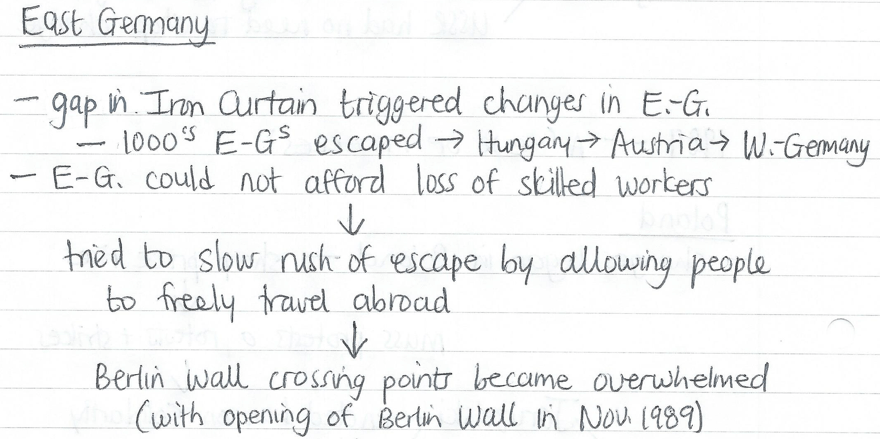 East Germany
- gap in Iron Curtain triggered changes in E.-G.
- 1000'ss E-Gs escaped → Hungary → Austria → W.-Germany
- E-G. could not afford loss of skilled workers
↓
tried to slow rush of escape by allowing people
to freely travel abroad
↓
Berlin Wall crossing points became overwhelmed
(with opening of Berlin Wall in Nov. 1989)